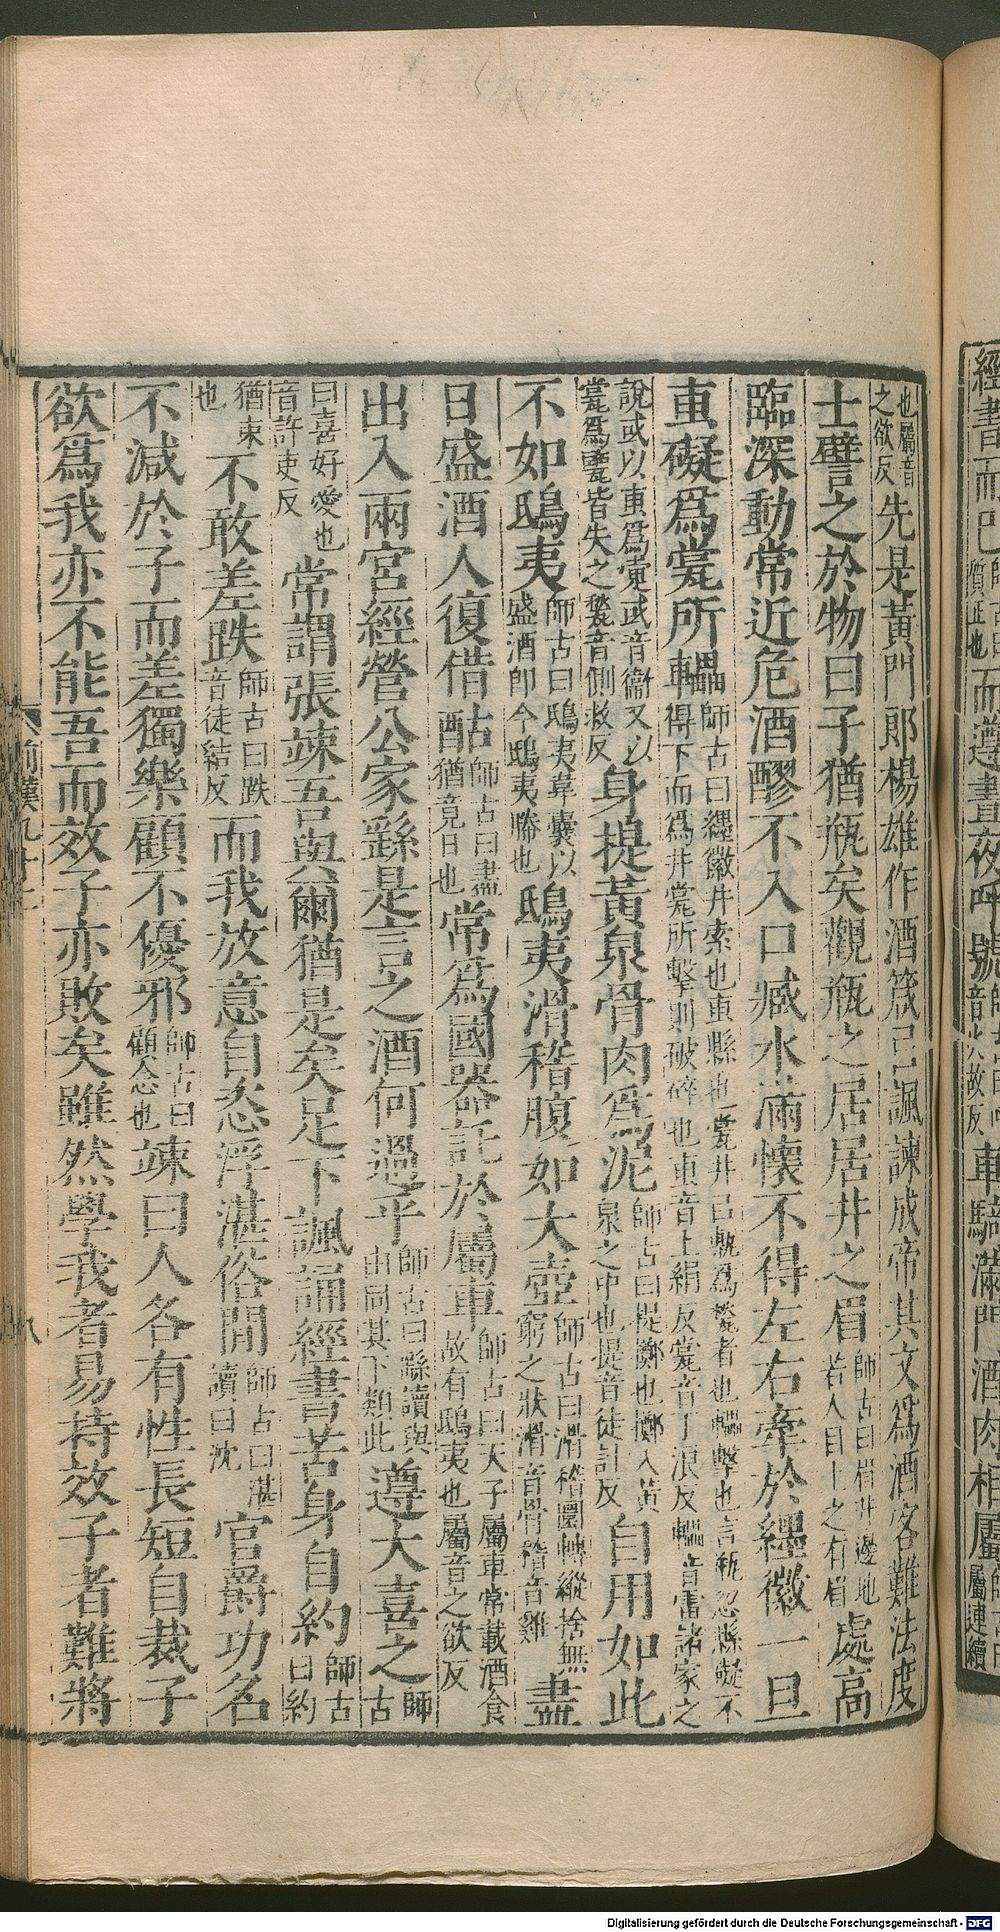 經書而已師古曰質正也而遵晝夜呼號師古曰呼音火故反車騎滿門酒肉相屬師古曰屬連續
也屬音之欲反先是黃門郎楊雄作酒箴已諷諫成帝其文爲酒客難法度
士譬之於物曰子猶瓶矣觀瓶之居居井之眉師古曰眉井邊地若人目上之有眉處高
臨深動常近危酒醪不入口臧水滿懷不得左右牽於纆徽一旦
叀礙爲瓽所轠師古曰纆徽井索也叀縣也瓽井已甎爲甃者也轠擊也言瓶忽縣礙不得下而爲井瓽所擊則破碎也叀音上絹反瓽音丁浪反轠音雷諸家之
說或以叀爲疐或音衞又以瓽爲甖皆失之甃音側救反身提黃泉骨肉爲泥師古曰提擲也擲入黃泉之中也提音徒計反自用如此
不如鴟夷師古曰鴟夷韋囊以盛酒即今鴟夷勝也鴟夷滑稽腹如大壺師古曰滑稽圜轉縱捨無窮之狀滑音骨稽音雞盡
日盛酒人復借酤師古曰盡猶竟日也常爲國器託於屬車師古曰天子屬車常載酒食故有鴟夷也屬音之欲反
出入兩宮經營公家繇是言之酒何過乎師古曰繇讀與由同其下類此遵大喜之師古
曰喜好愛也音許吏反常謂張竦吾與爾猶是矣足下諷誦經書苦身自約師古曰約
猶束也不敢差跌師古曰跌音徒結反而我放意自恣浮湛俗間師古曰湛讀曰沈官爵功名
不減於子而差獨樂顧不優邪師古曰顧念也竦曰人各有性長短自裁子
欲爲我亦不能吾而效子亦敗矣雖然學我者易持效子者難將
前漢九十二 八
Digitalisierung gefördert durch die Deutsche Forschungsgemeinschaft - DFG